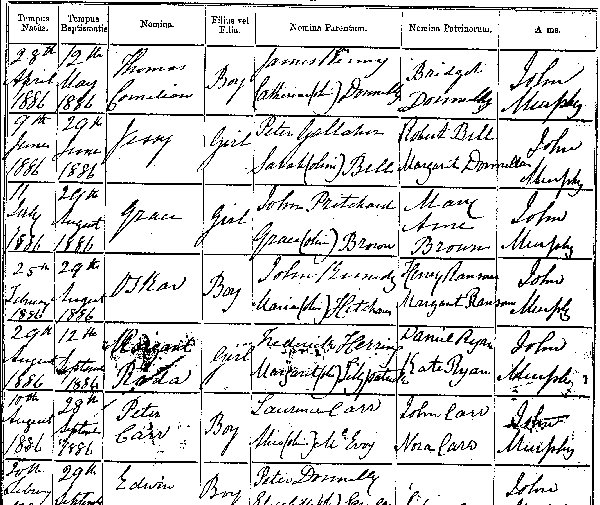 Tempus Natus. Tempus Baptismatis Nomina. Filius vel Filia. Nomina Parentum. Nomina Patrinorum. A me.
28th April 1886 12th May 1886 Thomas Cornelius Boy James Kenny Catherine (olim) Donnelly Bridget Donnelly John Murphy
9th June 1886 29th June 1886 Jenny Girl Peter Gallaher Sarah (olim) Bell Robert Bell Margaret John Murphy
11 July 1886 29th August 1886 Grace Girl John Pritchard Grace (olim) Brown Mary Ann Brown John Murphy
25th February 1886 29th August 1886 Oskar Boy John Kennedy Maria (olim) Henry Ransom Margaret Ransom John Murphy
29th August 1886 12th Septem 1886 Margaret Rosa Girl Frederick Herring Margaret (olim) Fitzpatrick Daniel Ryan Kate Ryan John Murphy
10th August 1886 29th Septem 1886 Peter Carr Boy Laurence Carr (olim) McEvoy John Carr Nora Carr John Murphy
29th Septembe Edwin Boy Peter Donnelly John